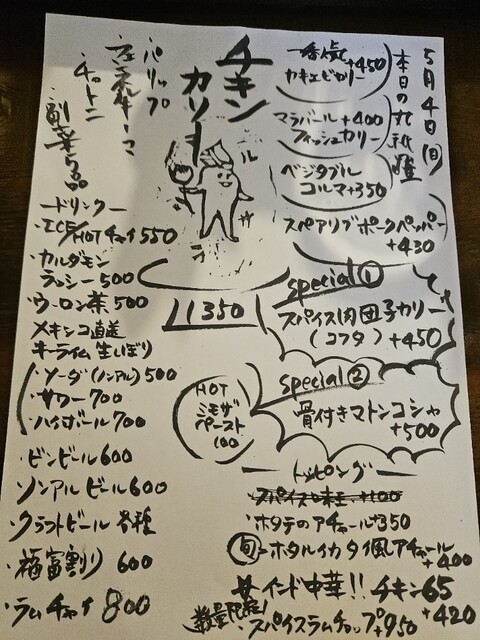 5月4日(日)
本日の
カキエビカリー
+450
マラバール
フィッシュカリー
+400
ベジタブル
コルマ+350
スペアリブポークペッパー
+430
チキン
カリー
パリップ
チャトニ
副菜5品
1350
special①
スパイス肉団子カリー
(コフタ) +450
special②
骨付きマトンコシャ
+500
HOT
ミモザ
ペースト
100
ードリンクー
・ICE/HOTチャイ550
・カルダモン
ラッシー500
・ウーロン茶500
メキシコ直送
キーライム生しぼり
・ソーダ(ノンアル)500
・サワー700
・ハイボール700
・ビンビール600
・ノンアルビール600
・クラフトビール各種
・福富割り 600
・ラムチャイ800
ートッピングー
・ホタテのアチャール+350
旬=ホタルイカタイ風アチャール
+400
インド中華!!チキン65
+420
数量限定!
・スパイスラムチョップ+950